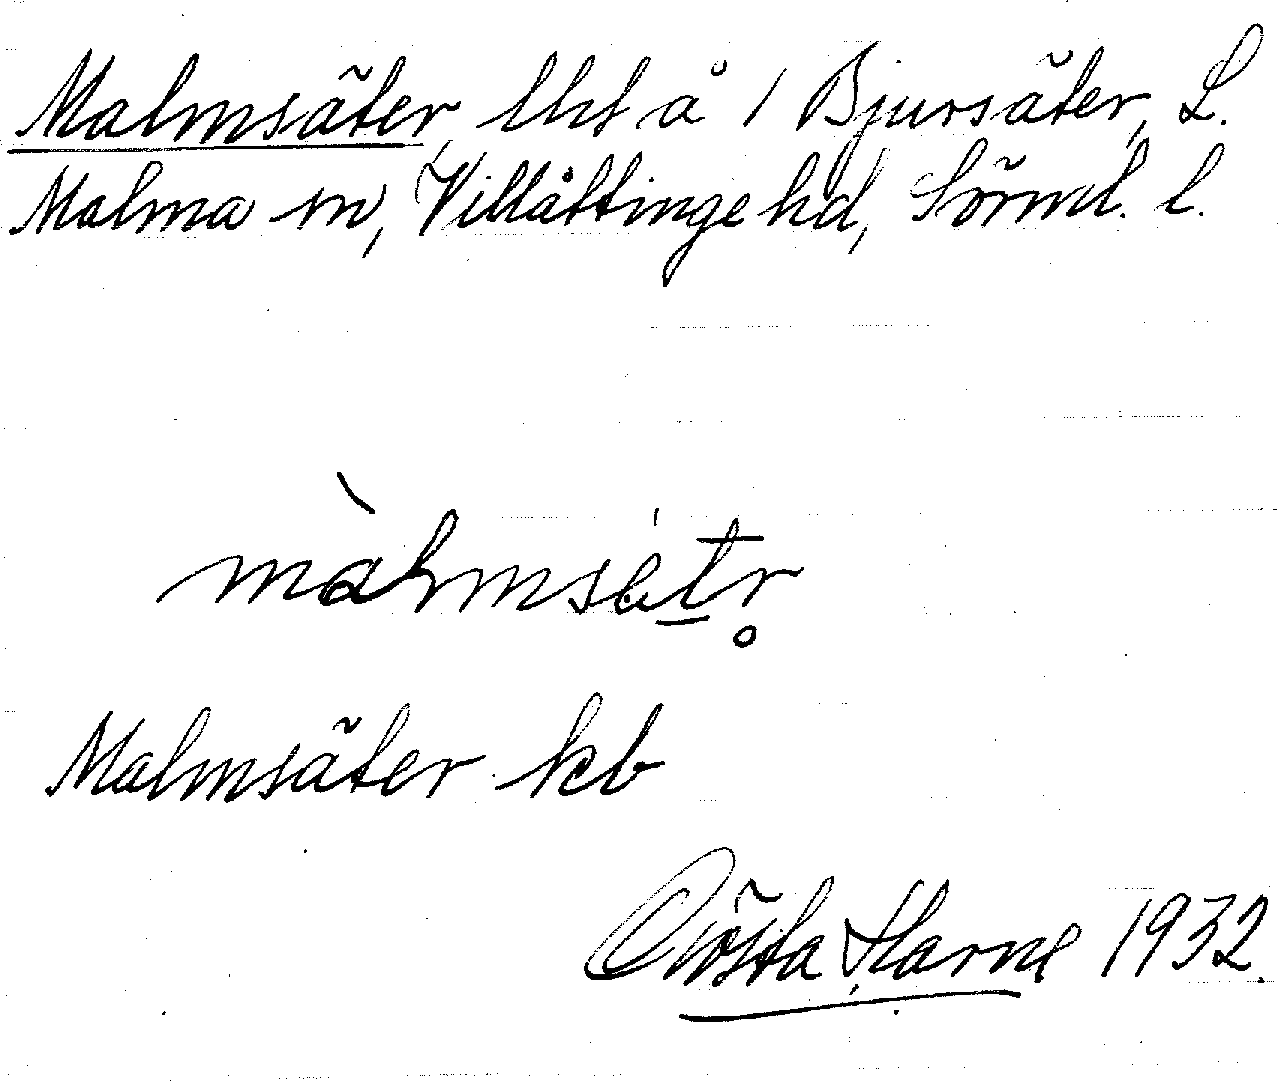 Malmsäter, lht å 1 Bjursäter, L.
Malma sn, Villåttinge hd, Sörml. l.
màlmsetr̥
Malmsäter kb
Gösta Harne 1932.